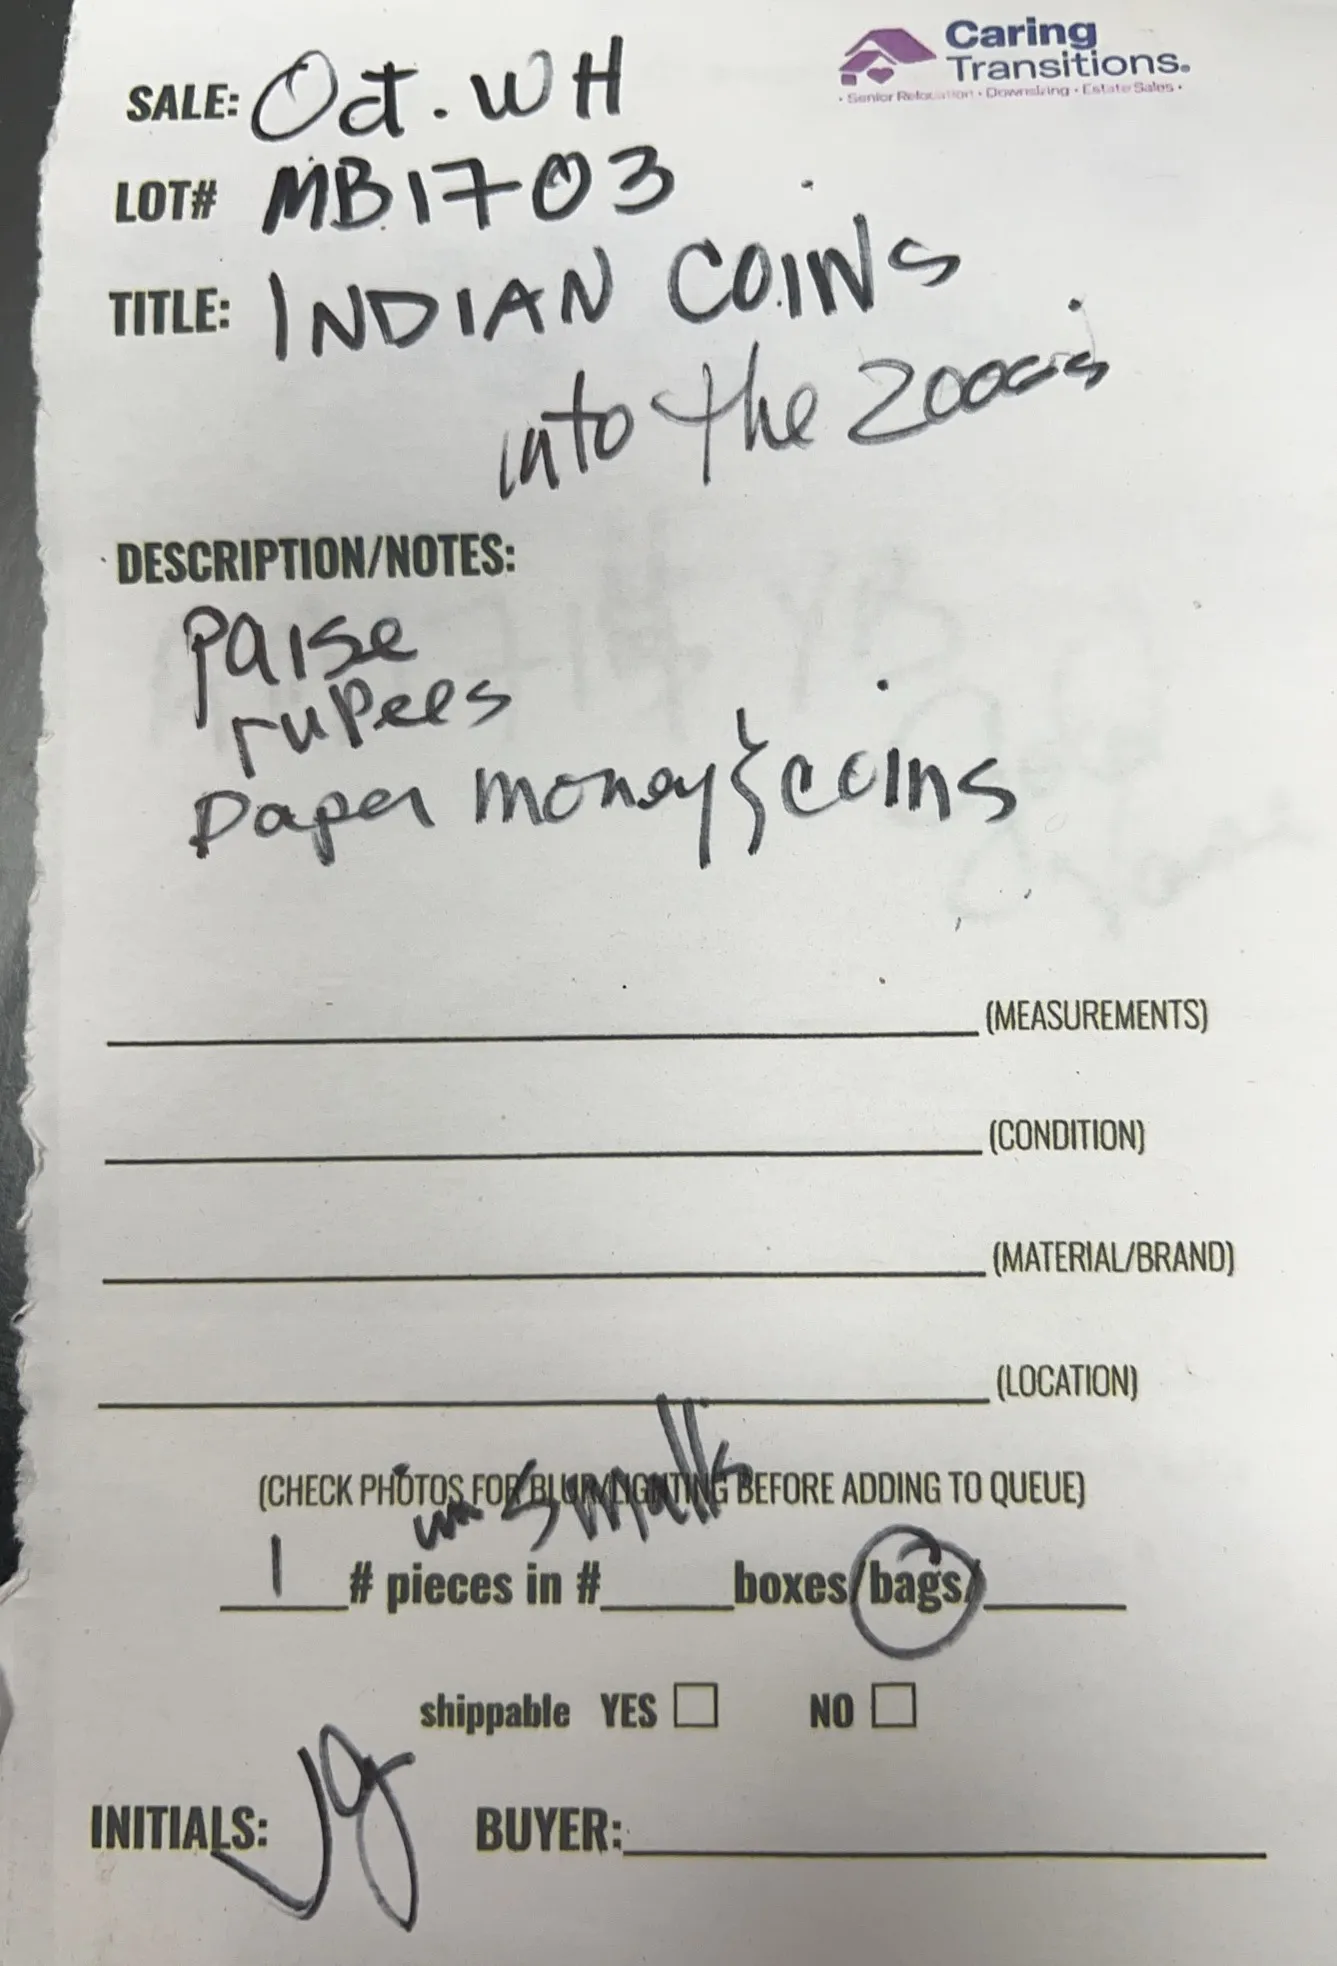 Caring
Transitions.
• Senior Relocation • Downsizing • Estate Sales •
SALE: Oct. WH
LOT# MB1703
TITLE: INDIAN COINS
into the 2000s
DESCRIPTION/NOTES:
paise
rupees
paper money & coins
(MEASUREMENTS)
(CONDITION)
(MATERIAL/BRAND)
(LOCATION)
(CHECK PHOTOS FOR BLUR/LIGHTING BEFORE ADDING TO QUEUE)
in smalls
1 # pieces in # boxes/bags/
shippable YES NO
INITIALS: Jg BUYER: